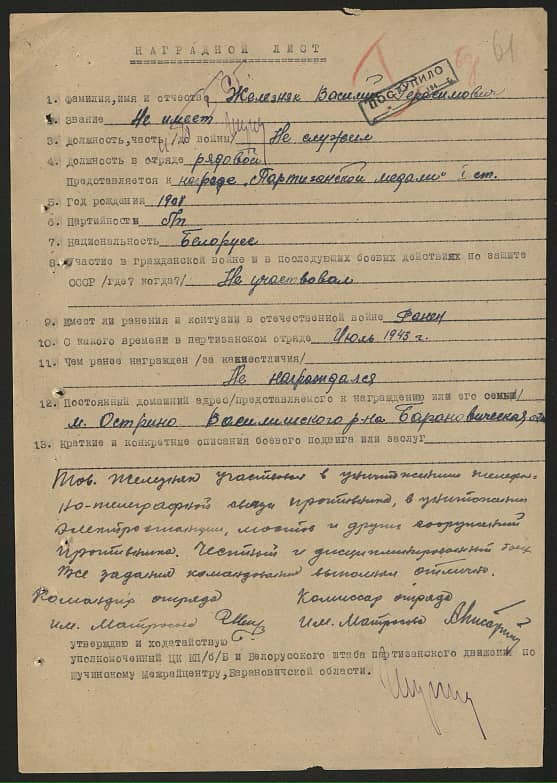 НАГРАДНОЙ ЛИСТ
61
ПОСТУПИЛО
1. Фамилия,имя и отчество Железняк Василий Герасимович
2. Звание Не имеет
3. Должность,часть /до войны/ Не служил
4. Должность в отряде рядовой
Представляется к награде „Партизанской медали" I ст.
5. Год рождения 1908
6. Партийность б/п
7. Национальность Белорусс
8. Участие в гражданской войне и в последующих боевых действиях по защите
СССР /где? когда?/ Не участвовал
9. Имеет ли ранения и контузии в отечественной войне Ранен
10. С какого времени в партизанском отряде Июль 1943 г.
11. Чем ранее награжден /за какиеотличия/
Не награждался
12. Постоянный домашний адрес/представляемого к награждению или его семьи/
м. Острино Василишского р-на Барановическая обл
13. Краткие и конкретные описания боевого подвига или заслуг
Тов. Железняк участвовал в уничтожении телефон-
но-телеграфной связи противника, в уничтожении
электростанции, мостов и других сооружений
противника. Честный и дисциплинированный боец
Все задания командования выполнял отлично.
Командир отряда Комиссар отряда
им. Матросова им. Матросова
утверждаю и ходатайствую
уполномоченный ЦК КП/б/Б и Белорусского штаба партизанского движения по
Щучинскому Межрайцентру,Барановичской области.